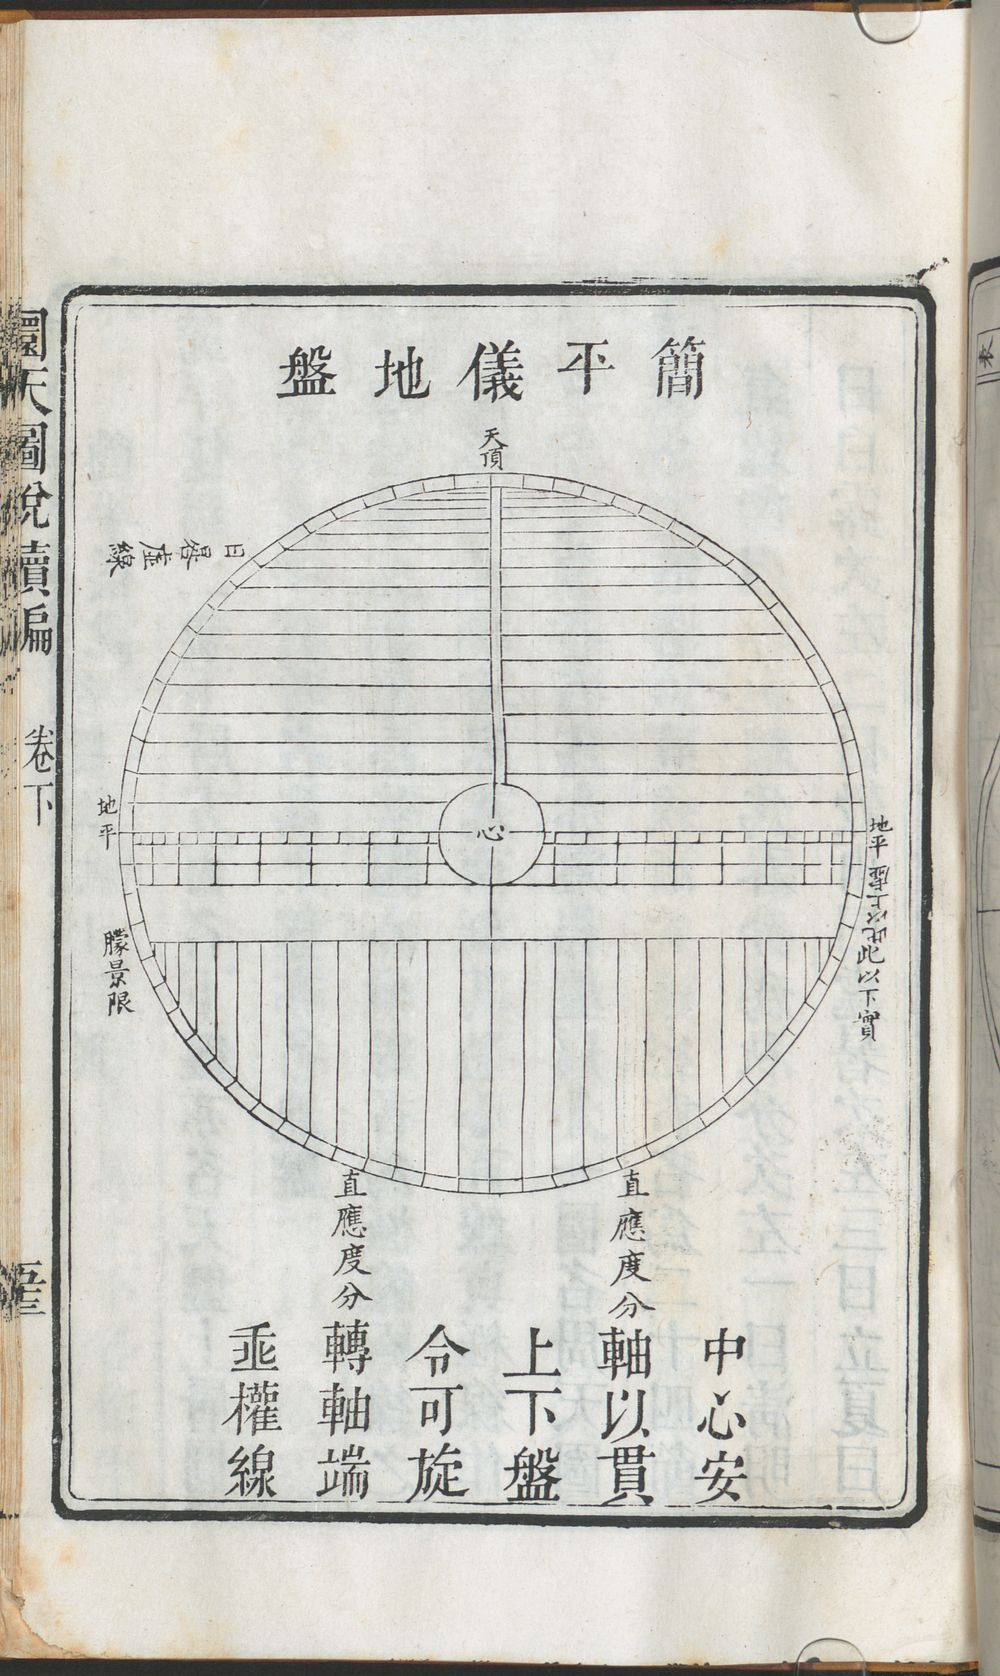 簡平儀地盤
天頂
日晷座線
地平
地平
此以上虛
此以下實
朦景限
直應度分
直應度分
中心安
軸以貫
上下盤
令可旋
轉軸端
垂權線
心
圜天圖說續編
卷下